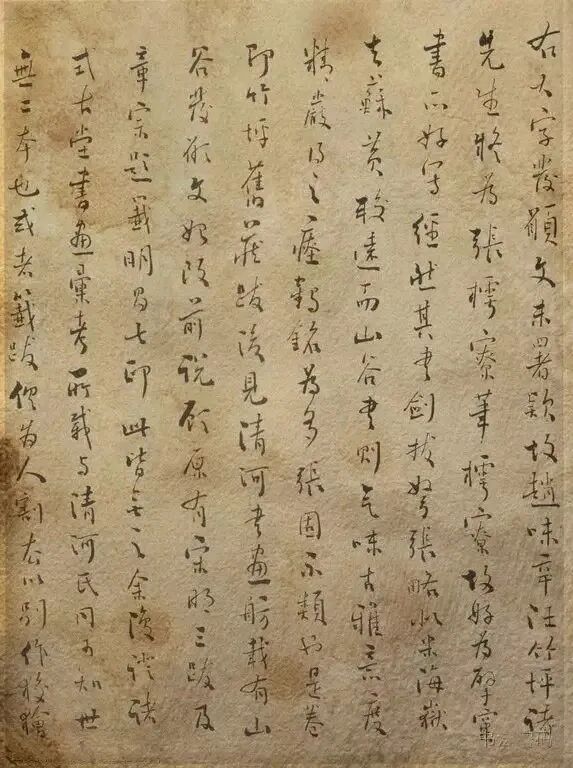 右大字發願文未署款故趙味辛汪竹坪諸
先生疑為張樗寮筆樗寮故好為擘窠
書亦好寫經然其書劍拔弩張略似米海嶽
去蘇黃較遠而山谷書則氣味古雅意度
精嚴得之瘞鶴銘為多張固不類也是卷
即竹坪舊藏跋後見清河書畫舫載有山
谷發願文始改前說顧原有宋明三跋及
章宗題籤明昌七印此皆無之余復證諸
式古堂書畫彙考所載与清河氏同可知世
無二本也或者籤跋為人割去以別作狡獪